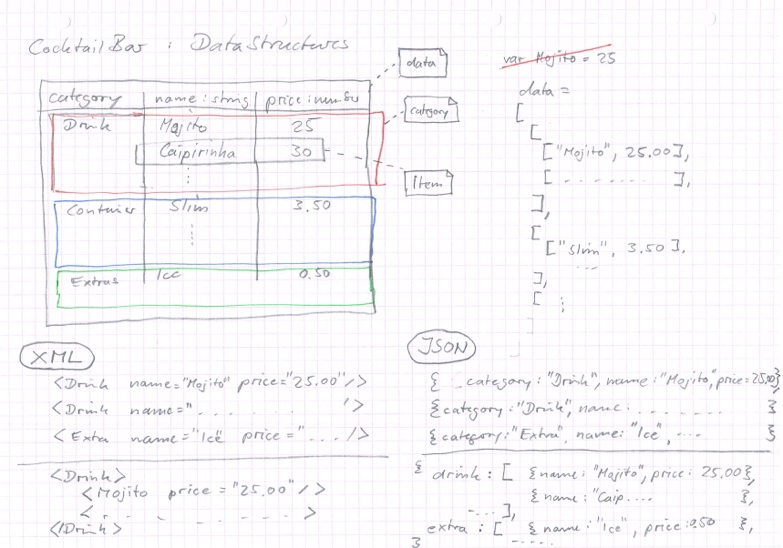 CocktailBar : DataStructures
data
category
Item
category name: string price: number
Drink Mojito 25
Caipirinha 30
Container Slim 3.50
Extras Ice 0.50
var Mojito = 25
data =
[
[
["Mojito", 25.00],
[ . . . . . . . ],
],
[
["Slim", 3.50],
...
],
[ :
]
XML
<Drink name="Mojito" price="25.00"/>
<Drink name=" . . . . . . . '>
<Extra name="Ice price=". . . . />
<Drink>
<Mojito price = "25.00" />
< . . . . . . . >
</Drink>
JSON
{ category: "Drink", name: "Mojito", price=25.00}
{category: "Drink", name: . . . . . . . }
{category: "Extra", name: "Ice", .... }
{ drink: [ {name: "Mojito", price: 25.00},
{name: "Caip.... },
....],
extra: [ {name: "Ice", price: 0.50 },
} ......